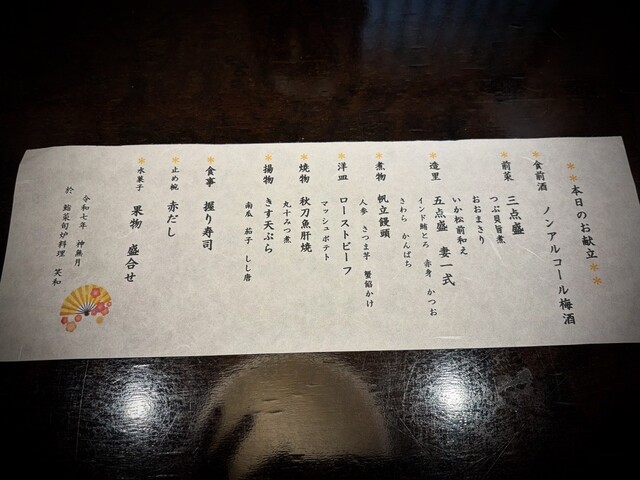 **本日のお献立**
*食前酒 ノンアルコール梅酒
*前菜 三点盛
つぶ貝旨煮
おおまさり
いか松前和え
*造里 五点盛 妻一式
インド鮪とろ 赤身 かつお
さわら かんぱち
*煮物 帆立饅頭
人参 さつま芋 蟹餡かけ
*洋皿 ローストビーフ
マッシュポテト
*焼物 秋刀魚肝焼
丸十みつ煮
*揚物 きす天ぷら
南瓜 茄子 しし唐
*食事 握り寿司
*止め椀 赤だし
*水菓子 果物 盛合せ
令和七年 神無月
於 鮨菜旬炉料理 笑和